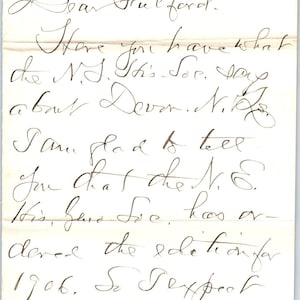 Dear Fulford.
Here you have what
the N.J. His. Soc. says
about Devon. N. Es.
I am glad to tell
you that the N. E.
His. Gene Soc. has or-
dered the edition for
1906. So I expect